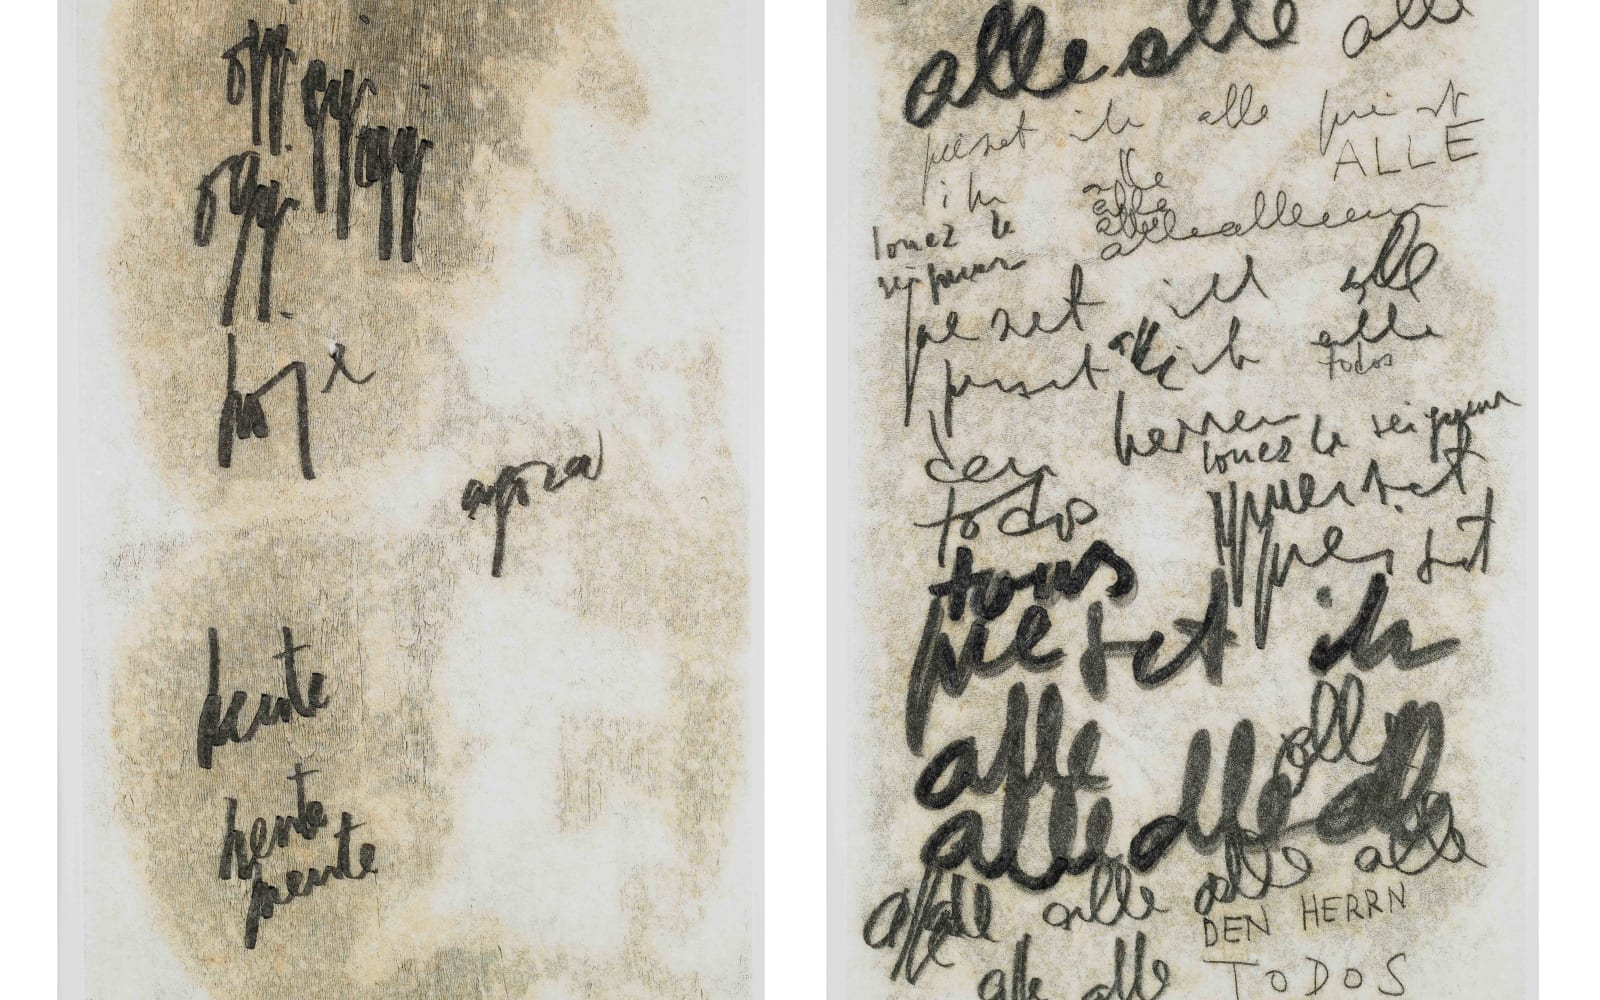 oggi
oggi
agora
heute
heute
heute
alle alle alle
preiset ihn alle preist
ALLE
ihn alle
alle
louez le alle
seigneur
preiset ihn alle
preiset alle ihn alle
todos
den herren
louez le seigneur
todos preiset
tous preiset
preiset ihn
alle alle
alle alle alle
alle alle alle alle
DEN HERRN
alle alle
TODOS